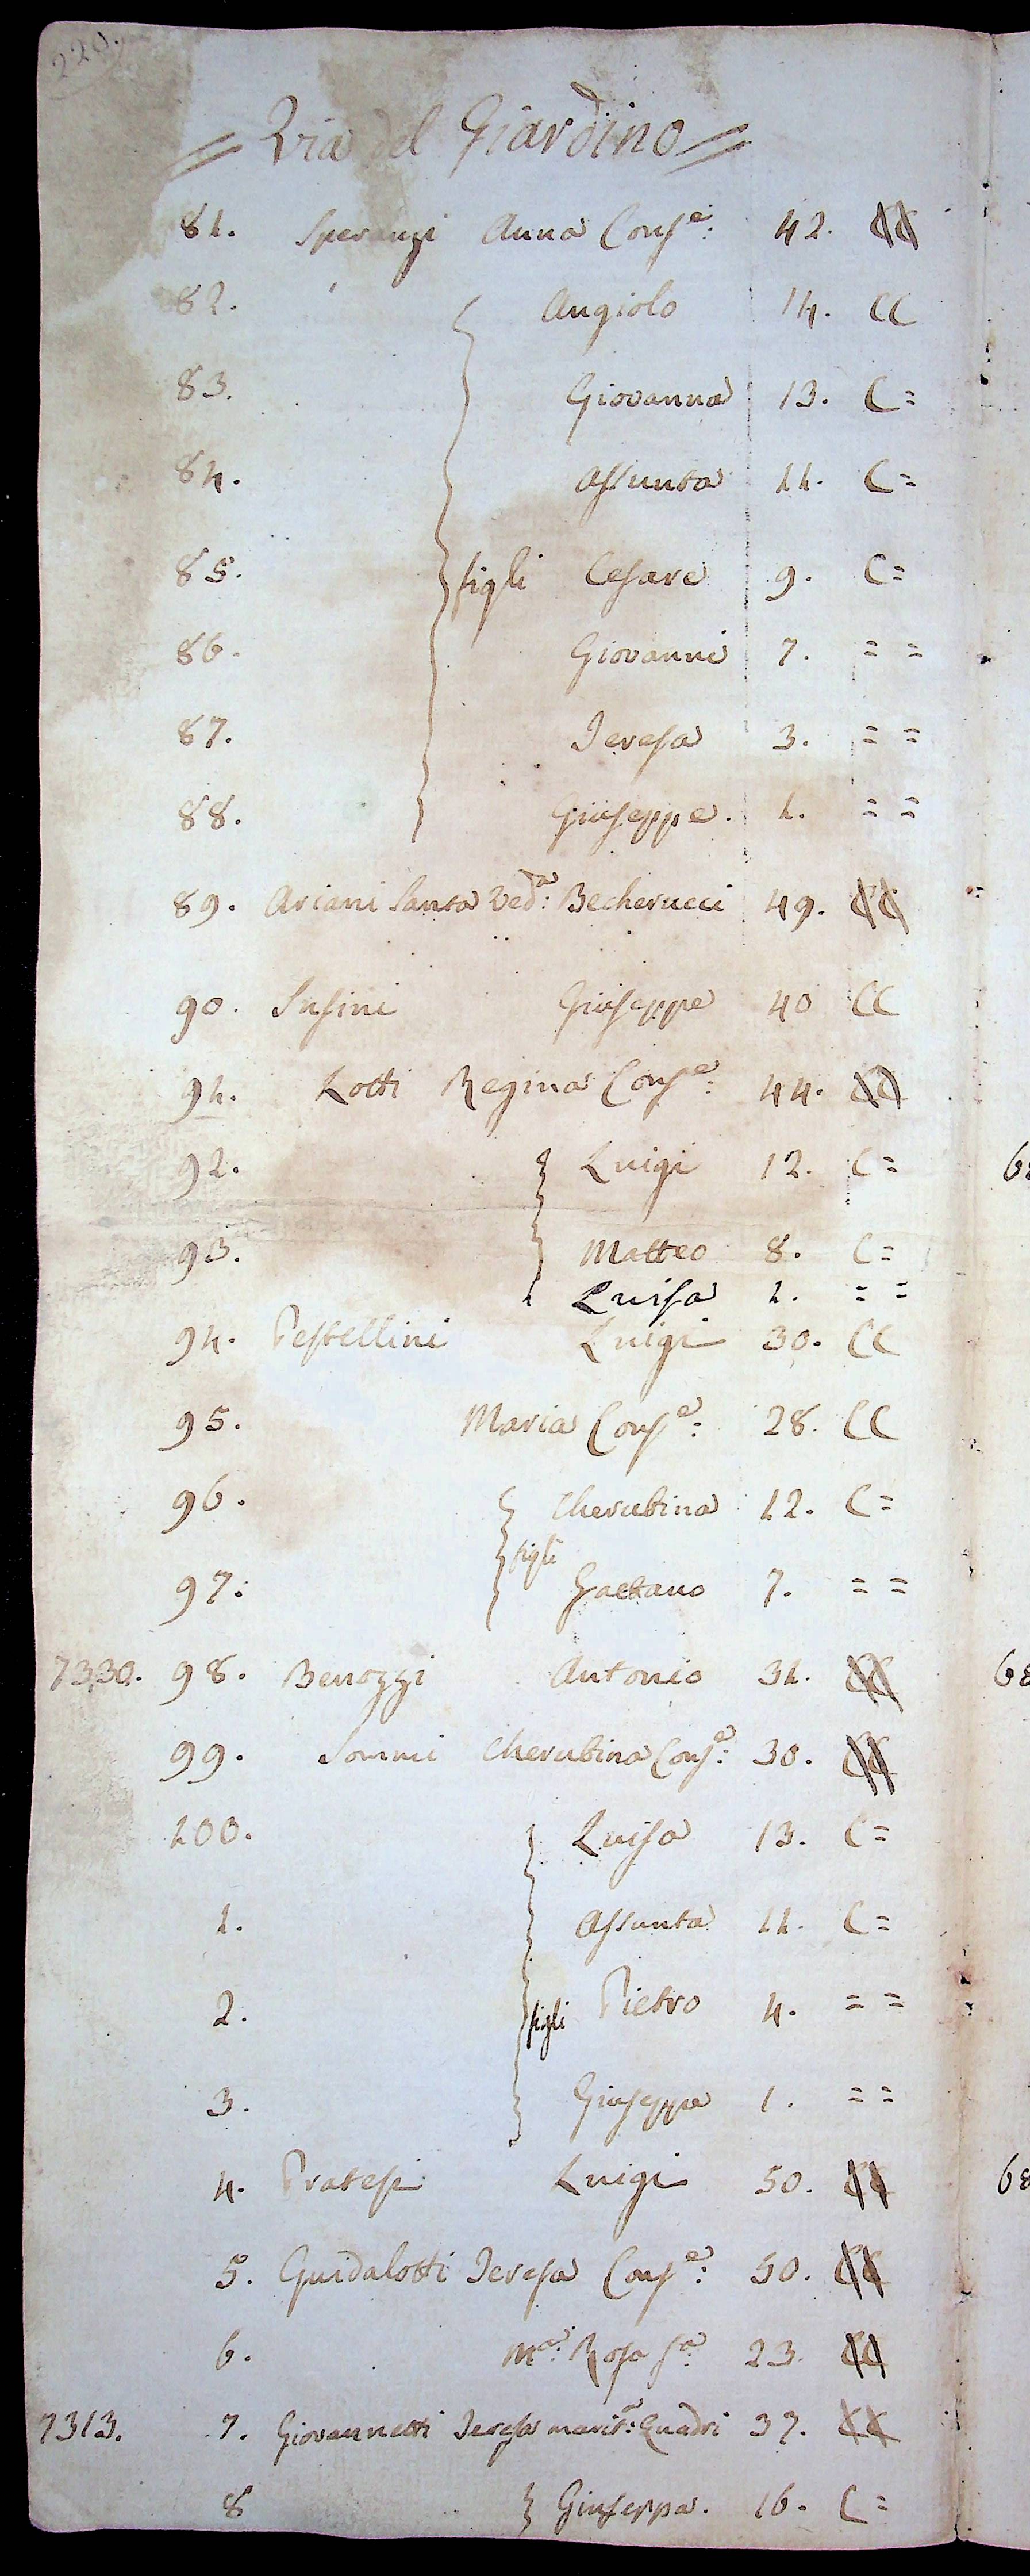 220.
= Via del Giardino =
81. Speranzi Anna Conse: 42. CC
82. Angiolo 14. CC
83. Giovanna 13. C=
84. Assunta 11. C=
85. figli Cesare 9. C=
86. Giovanni 7. = =
87. Teresa 3. = =
88. Giuseppe. 1. = =
89. Ariani Santa Veda: Becherucci 49. CC
90. Susini Giuseppe 40 CC
91. Lotti Regina Conse: 44. CC
92. Luigi 12. C=
93. Matteo 8. C=
Luisa 1. = =
94. Pestellini Luigi 30. CC
95. Maria Conse: 28. CC
96. Cherubina 12. C=
figli
97. Gaetano 7. = =
7330. 98. Benozzi Antonio 31. CC
99. Sommi Cherubina Conse: 30. CC
100. Luisa 13. C=
1. Assunta 11. C=
2. figli Pietro 4. = =
3. Giuseppe 1. = =
4. Pratesi Luigi 50. CC
5. Guidalotti Teresa Conse: 50. CC
6. Ma: Rosa fa: 23. CC
7313. 7. Giovannetti Teresa marita: Quadri 37. CC
8 Giuseppa. 16. C=